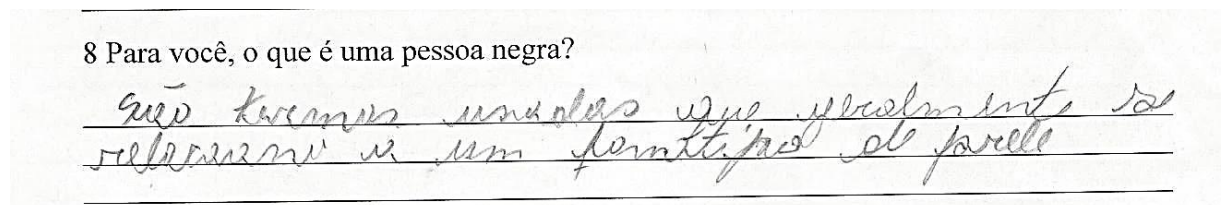 8 Para você, o que é uma pessoa negra?
São termos usados que geralmente se
a um de pele